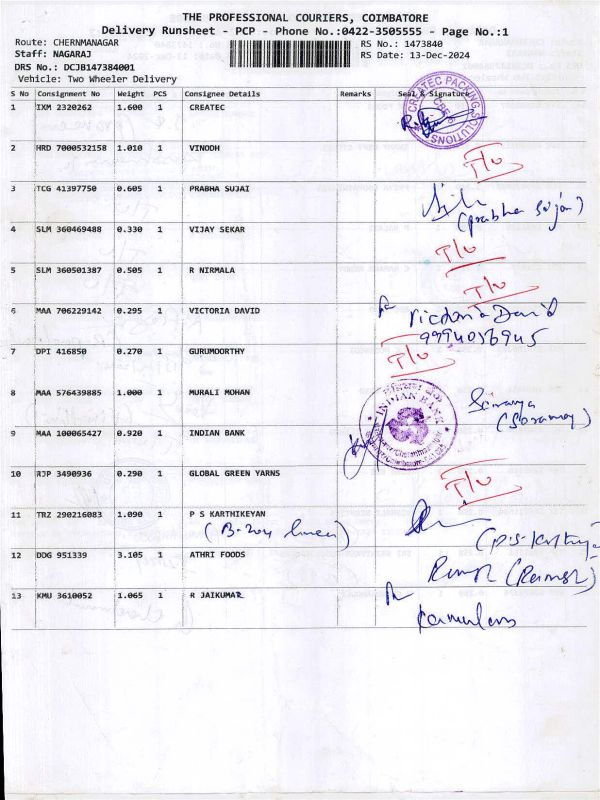 THE PROFESSIONAL COURIERS, COIMBATORE
Delivery Runsheet - PCP - Phone No.:0422-3505555 - Page No.:1
Route: CHERNMANAGAR RS No.: 1473840
Staff: NAGARAJ RS Date: 13-Dec-2024
DRS No.: DCJB147384001
Vehicle: Two Wheeler Delivery
S No Consignment No Weight PCS Consignee Details Remarks Seal & Signature
1 IXM 2320262 1.600 1 CREATEC CREATEC PACKING SOLUTIONS CBE
2 HRD 7000532158 1.010 1 VINODH T/O
3 TCG 41397750 0.605 1 PRABHA SUJAI
(prabha Sujai)
4 SLM 360469488 0.330 1 VIJAY SEKAR T/O
5 SLM 360501387 0.505 1 R NIRMALA T/O
6 MAA 706229142 0.295 1 VICTORIA DAVID Victoria David
9994056945
7 DPI 416850 0.270 1 GURUMOORTHY T/O
8 MAA 576439885 1.000 1 MURALI MOHAN
9 MAA 100065427 0.920 1 INDIAN BANK INDIAN BANK
10 RJP 3490936 0.290 1 GLOBAL GREEN YARNS T/O
11 TRZ 290216083 1.090 1 P S KARTHIKEYAN
12 DDG 951339 3.105 1 ATHRI FOODS
13 KMU 3610052 1.065 1 R JAIKUMAR